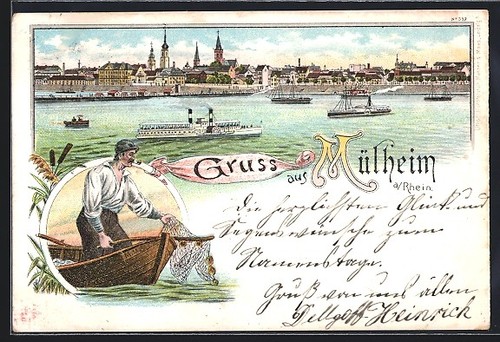 No 532
Gruss
aus Mülheim
a/Rhein.
Die herzlichsten Glück und
Segenswünsche zum
Namenstage.
Gruß von uns allen
Heinrich